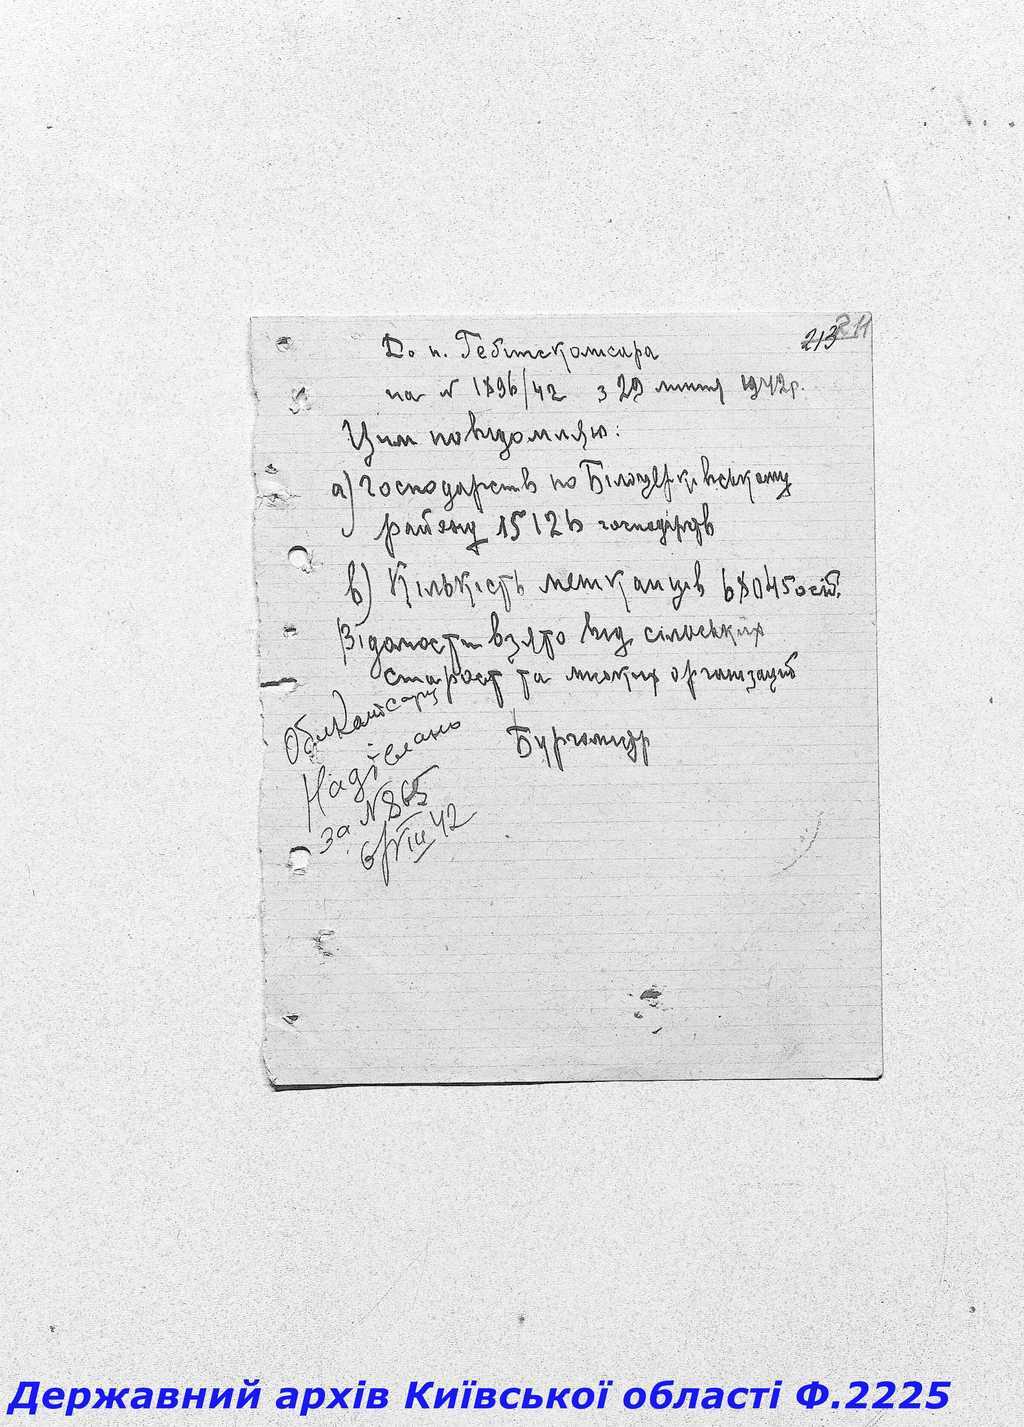 213 211
До п. Гебітскомісара
на № 1896/42 з 29 липня 1942 р.
Цим повідомляю:
а) Господарств по Білоцерківському
району 15126 господарств
в) Кількість мешканців 68045 осіб.
Відомости взято від сільських
старост та міських організацій
Бургомістр
Облкомісару
Надіслано
за № 865
6/VIII 42
Державний архів Київської області Ф.2225